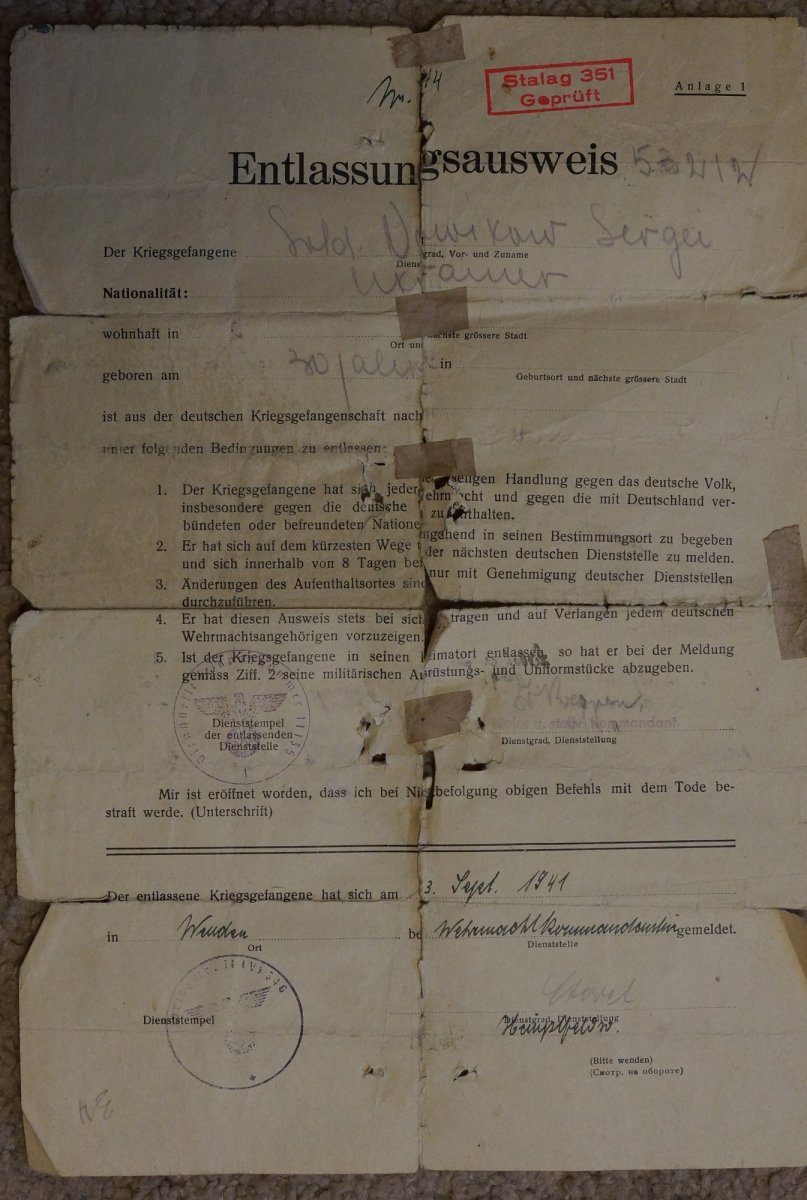 Stalag 351
Geprüft
Anlage 1
Entlassungsausweis
Der Kriegsgefangene Sold. Sergei
Dienstgrad, Vor- und Zuname
Nationalität: Ukrainer
wohnhaft in
Ort und nächste grössere Stadt
geboren am in
Geburtsort und nächste grössere Stadt
ist aus der deutschen Kriegsgefangenschaft nach
unter folgenden Bedingungen zu entlassen:
1. Der Kriegsgefangene hat sich jeder feindseligen Handlung gegen das deutsche Volk,
insbesondere gegen die deutsche Wehrmacht und gegen die mit Deutschland ver-
bündeten oder befreundeten Nationen zu enthalten.
2. Er hat sich auf dem kürzesten Wege umgehend in seinen Bestimmungsort zu begeben
und sich innerhalb von 8 Tagen bei der nächsten deutschen Dienststelle zu melden.
3. Änderungen des Aufenthaltsortes sind nur mit Genehmigung deutscher Dienststellen
durchzuführen.
4. Er hat diesen Ausweis stets bei sich zu tragen und auf Verlangen jedem deutschen
Wehrmachtsangehörigen vorzuzeigen.
5. Ist der Kriegsgefangene in seinen Heimatort entlassen, so hat er bei der Meldung
gemäss Ziff. 2 seine militärischen Ausrüstungs- und Uniformstücke abzugeben.
Dienststempel
der entlassenden
Dienststelle
Dienstgrad, Dienststellung
Mir ist eröffnet worden, dass ich bei Nichtbefolgung obigen Befehls mit dem Tode be-
straft werde. (Unterschrift)
Der entlassene Kriegsgefangene hat sich am 3. Sept. 1941
in Wenden bei Wehrmachtkommandantur gemeldet.
Ort
Dienststelle
Dienststempel
Dienstgrad, Dienststellung
Hauptfeldw.
(Bitte wenden)
(Смотр. на обороте)